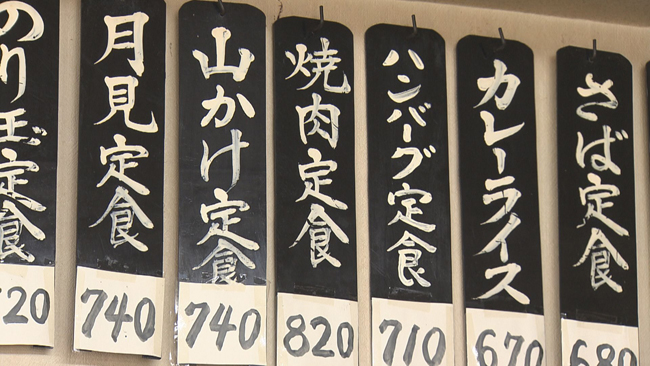 のり玉定食
720
月見定食
740
山かけ定食
740
焼肉定食
820
ハンバーグ定食
710
カレーライス
670
さば定食
680